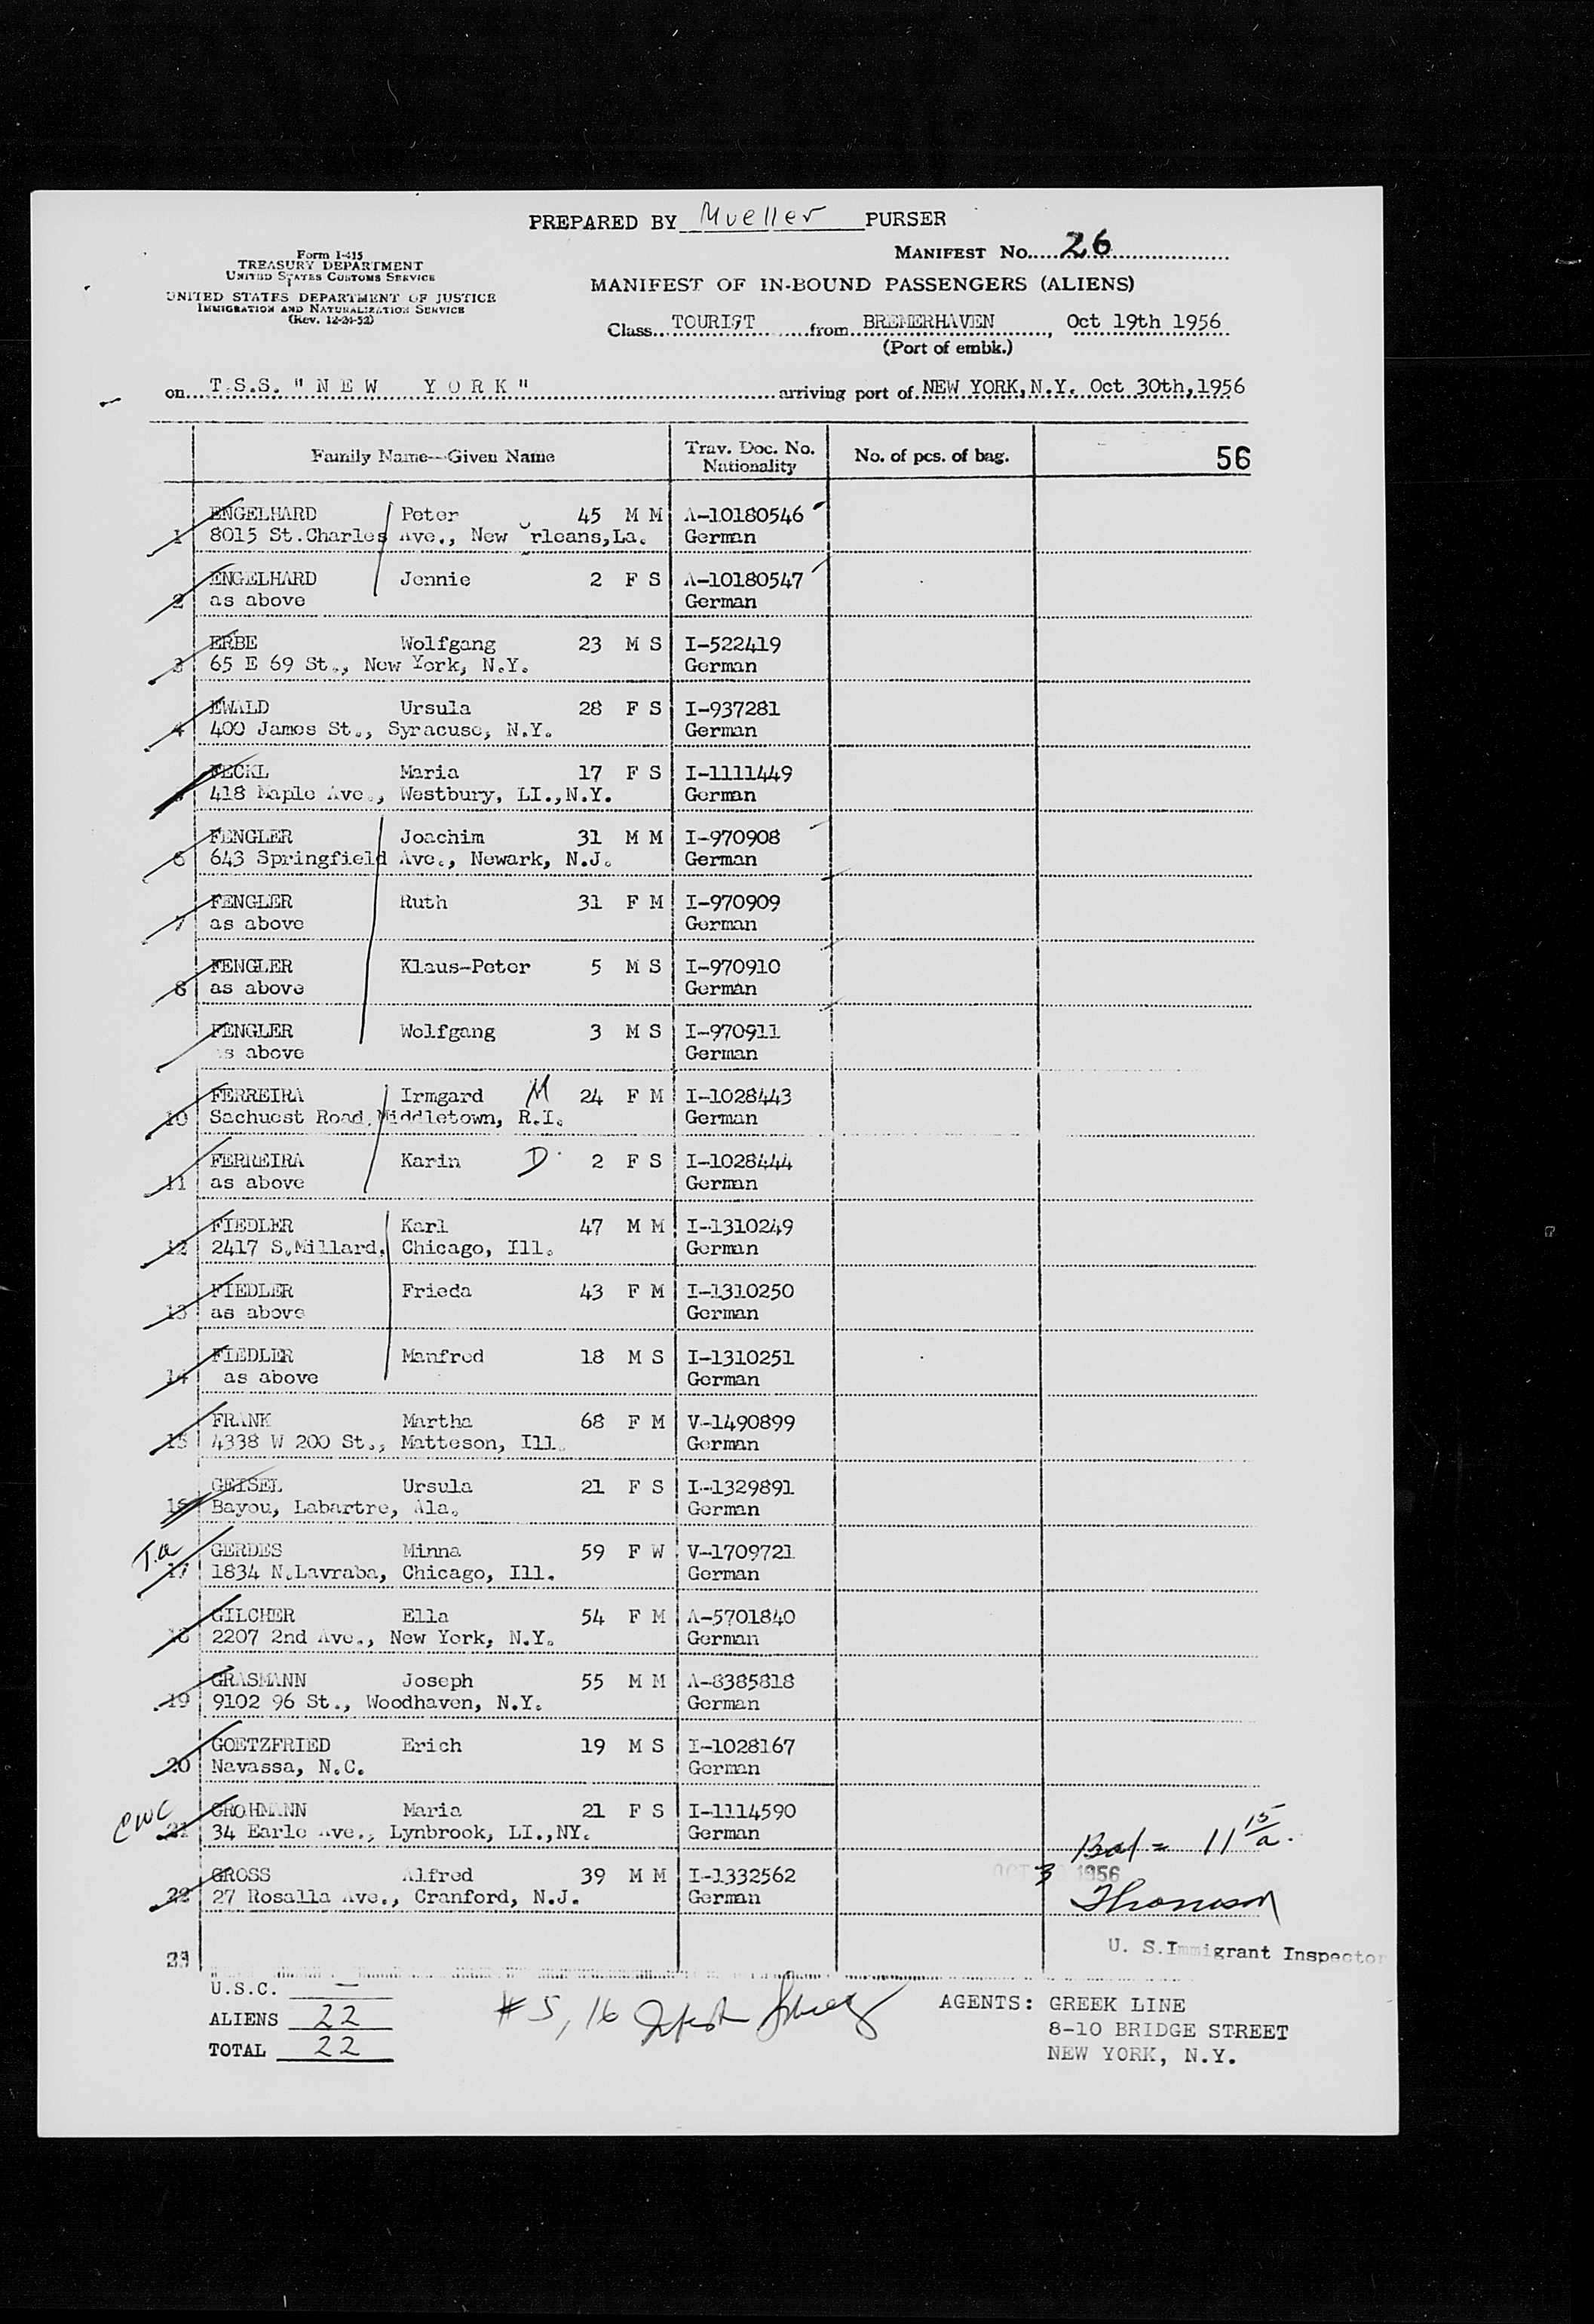 PREPARED BY Mueller PURSER
Form I-415
TREASURY DEPARTMENT
UNITED STATES CUSTOMS SERVICE
UNITED STATES DEPARTMENT OF JUSTICE
IMMIGRATION AND NATURALIZATION SERVICE
(Rev. 12-24-52)
MANIFEST No. 26
MANIFEST OF IN-BOUND PASSENGERS (ALIENS)
Class TOURIST from BREMERHAVEN, Oct 19th 1956
(Port of embk.)
on T.S.S. "NEW YORK" arriving port of NEW YORK, N.Y. Oct 30th, 1956
Family Name—Given Name Trav. Doc. No. Nationality No. of pcs. of bag. 56
1 ENGELHARD Peter 45 M M A-10180546
8015 St.Charles Ave., New Orleans,La. German
2 ENGELHARD Jennie 2 F S A-10180547
as above German
3 ERBE Wolfgang 23 M S I-522419
65 E 69 St., New York, N.Y. German
4 EWALD Ursula 28 F S I-937281
400 James St., Syracuse, N.Y. German
FECKL Maria 17 F S I-1111449
418 Maple Ave., Westbury, LI.,N.Y. German
6 FENGLER Joachim 31 M M I-970908
643 Springfield Ave., Newark, N.J. German
7 FENGLER Ruth 31 F M I-970909
as above German
8 FENGLER Klaus-Peter 5 M S I-970910
as above German
FENGLER Wolfgang 3 M S I-970911
as above German
10 FERREIRA Irmgard M 24 F M I-1028443
Sachuest Road, Middletown, R.I. German
11 FERREIRA Karin D 2 F S I-1028444
as above German
12 FIEDLER Karl 47 M M I-1310249
2417 S.Millard, Chicago, Ill. German
13 FIEDLER Frieda 43 F M I-1310250
as above German
14 FIEDLER Manfred 18 M S I-1310251
as above German
15 FRANK Martha 68 F M V-1490899
4338 W 200 St., Matteson, Ill. German
16 GEISEL Ursula 21 F S I-1329891
Bayou, Labartre, Ala. German
17 GERDES Minna 59 F W V-1709721
1834 N.Lavraba, Chicago, Ill. German
18 GILCHER Ella 54 F M A-5701840
2207 2nd Ave., New York, N.Y. German
19 GRASMANN Joseph 55 M M A-8385818
9102 96 St., Woodhaven, N.Y. German
20 GOETZFRIED Erich 19 M S I-1028167
Navassa, N.C. German
CWC
21 GROHMANN Maria 21 F S I-1114590
34 Earle Ave., Lynbrook, LI.,NY. German
22 GROSS Alfred 39 M M I-1332562
27 Rosalla Ave., Cranford, N.J. German
OCT 3 1956
Thomson
U. S. Immigrant Inspector
23
U.S.C. —
ALIENS 22
TOTAL 22
#5, 16
AGENTS: GREEK LINE
8-10 BRIDGE STREET
NEW YORK, N.Y.